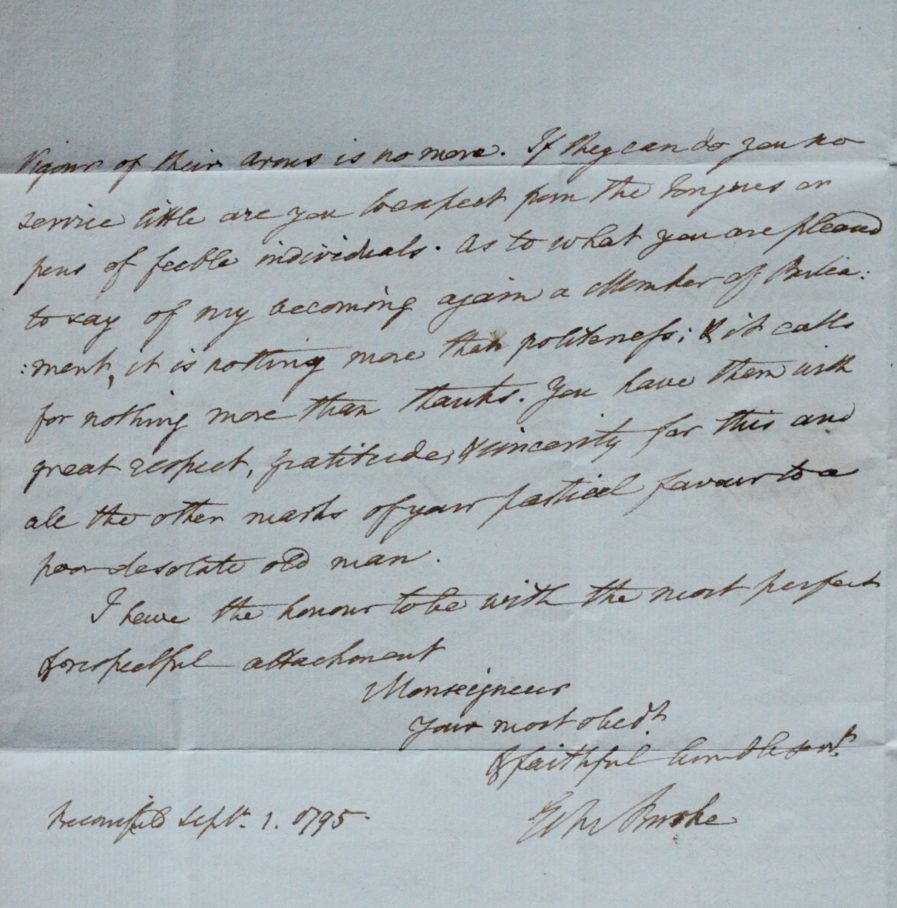 Vigour of their Arms is no more. If they can do you no
service little are you to expect from the Tongues or
pens of feeble individuals. As to what you are pleased
to say of my becoming again a Member of Parlia:
:ment, it is nothing more than politeness; & it calls
for nothing more than thanks. You have them with
great respect, gratitude, & sincerity for this and
all the other marks of your partial favour to a
poor desolate old man.
I have the honour to be with the most perfect
& respectful attachment
Monseigneur
Your most obedt
& faithful humble servt.
Edm Burke
Beconsfield Septr. 1. 1795.